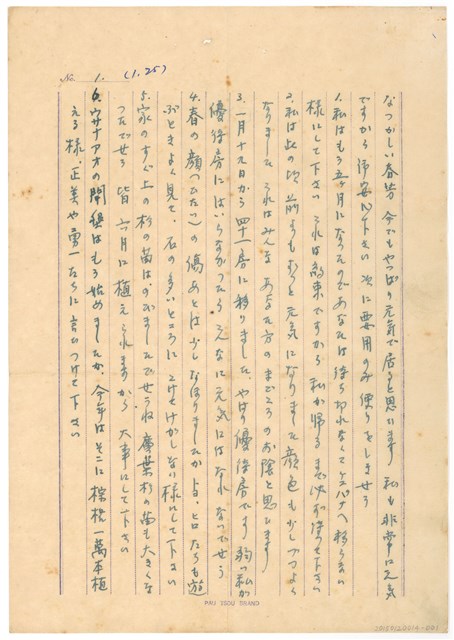 No. 1. (1.25)
なつかしい春芳 今でもやっぱり元気で居ると思います 私も非常に元気
ですから御安心下さい 次に要用のみ便りをしませう
1.私はもう五ヶ月になったのであなたは待ち切れなくてケユパナへ移らない
様にして下さい これは約束ですから 私が帰るまで必ず待って下さい
2.私は此の頃前よりもずっと元気になりました 顔色も少しづつよく
なりました これはみんなあなた方のまごころのお陰と思ひます
3.一月十九日から四十一房に移りました、やはり優待房です 弱い私が
優待房にはいらなかったら こんなに元気にはなれなかったでせう
4.春の顔(ひたい)の傷あとは少しなほりましたか トヨ、ヒロたちも遊
ぶときよく見て、石の多いところに こけてけがしない様にして下さい
5.家のすぐ上の杉の苗はのびましたでせうね 廣葉杉の苗も大きくな
ったでせう 皆 六月に植えられますから 大事にして下さい
6.ウサナアオの開墾はもう始めましたか、今年はそこに棕梠一萬本植
える様、正美や勇一たちに言ひつけて下さい
PAU TSOU BRAND